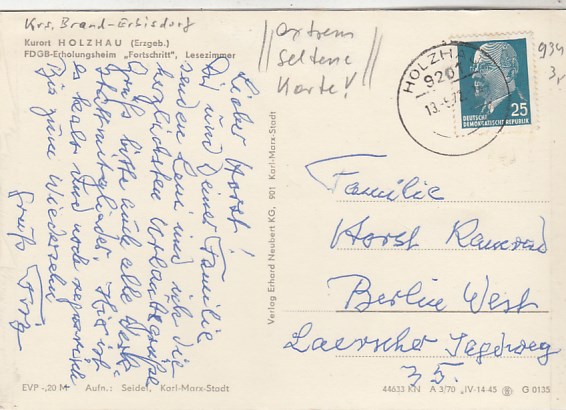 Krs. Brand-Erbisdorf
Kurort HOLZHAU (Erzgeb.)
FDGB-Erholungsheim „Fortschritt", Lesezimmer
extrem
seltene
Karte!
HOLZHAU
9201
25
DEUTSCHE
DEMOKRATISCHE REPUBLIK
934
3,
Lieber Horst!
Dir und Deiner Familie
senden Leni und ich die
herzlichsten Urlaubsgrüße
Grüß bitte auch alle
es kalt und noch
Bis zum Wiedersehn
Gruß Fritz
Verlag Erhard Neubert KG, 901 Karl-Marx-Stadt
Familie
Horst
Berlin West
Laerscher Jagdweg
35.
EVP -,20 M Aufn.: Seidel, Karl-Marx-Stadt
44633 KN A 3/70 IV-14-45 G 0135